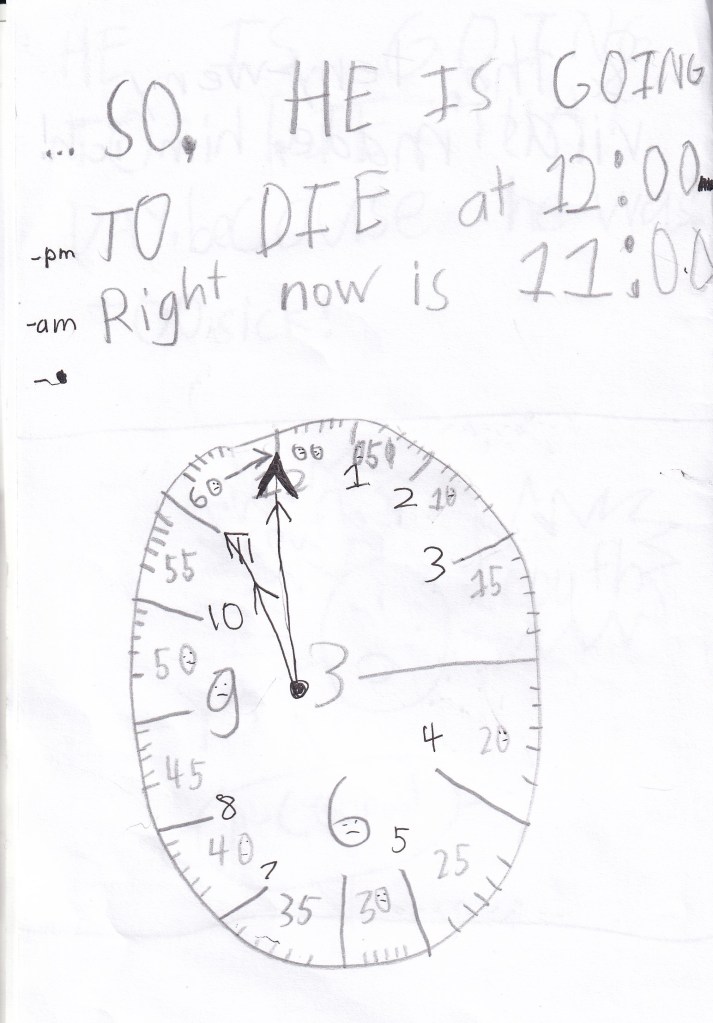 ... SO, HE IS GOING
TO DIE at 12:00
-pm
Right now is 11:00
-am
00
05
60
12
1
2
10
11
3
15
55
10
50
9
3
4
20
45
8
6
5
40
7
25
35
30